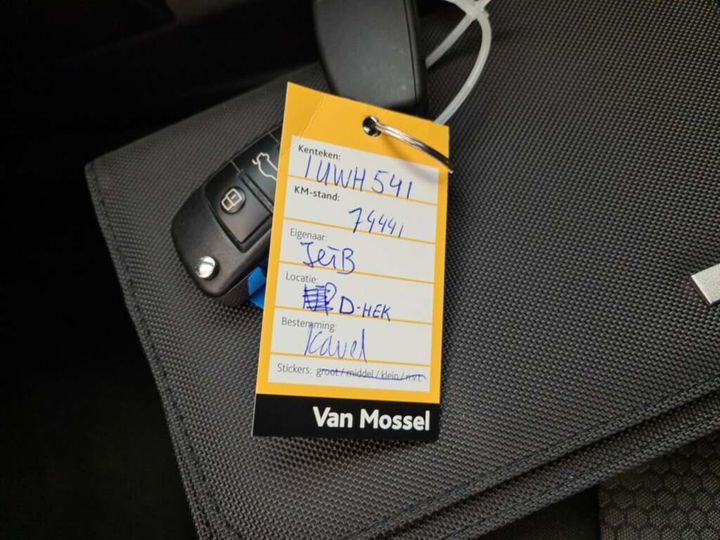 Kenteken:
1UWH541
KM-stand:
74441
Eigenaar:
Locatie:
D-HEK
Bestemming:
Kavel
Stickers: groot / middel / klein / n.v.t.
Van Mossel